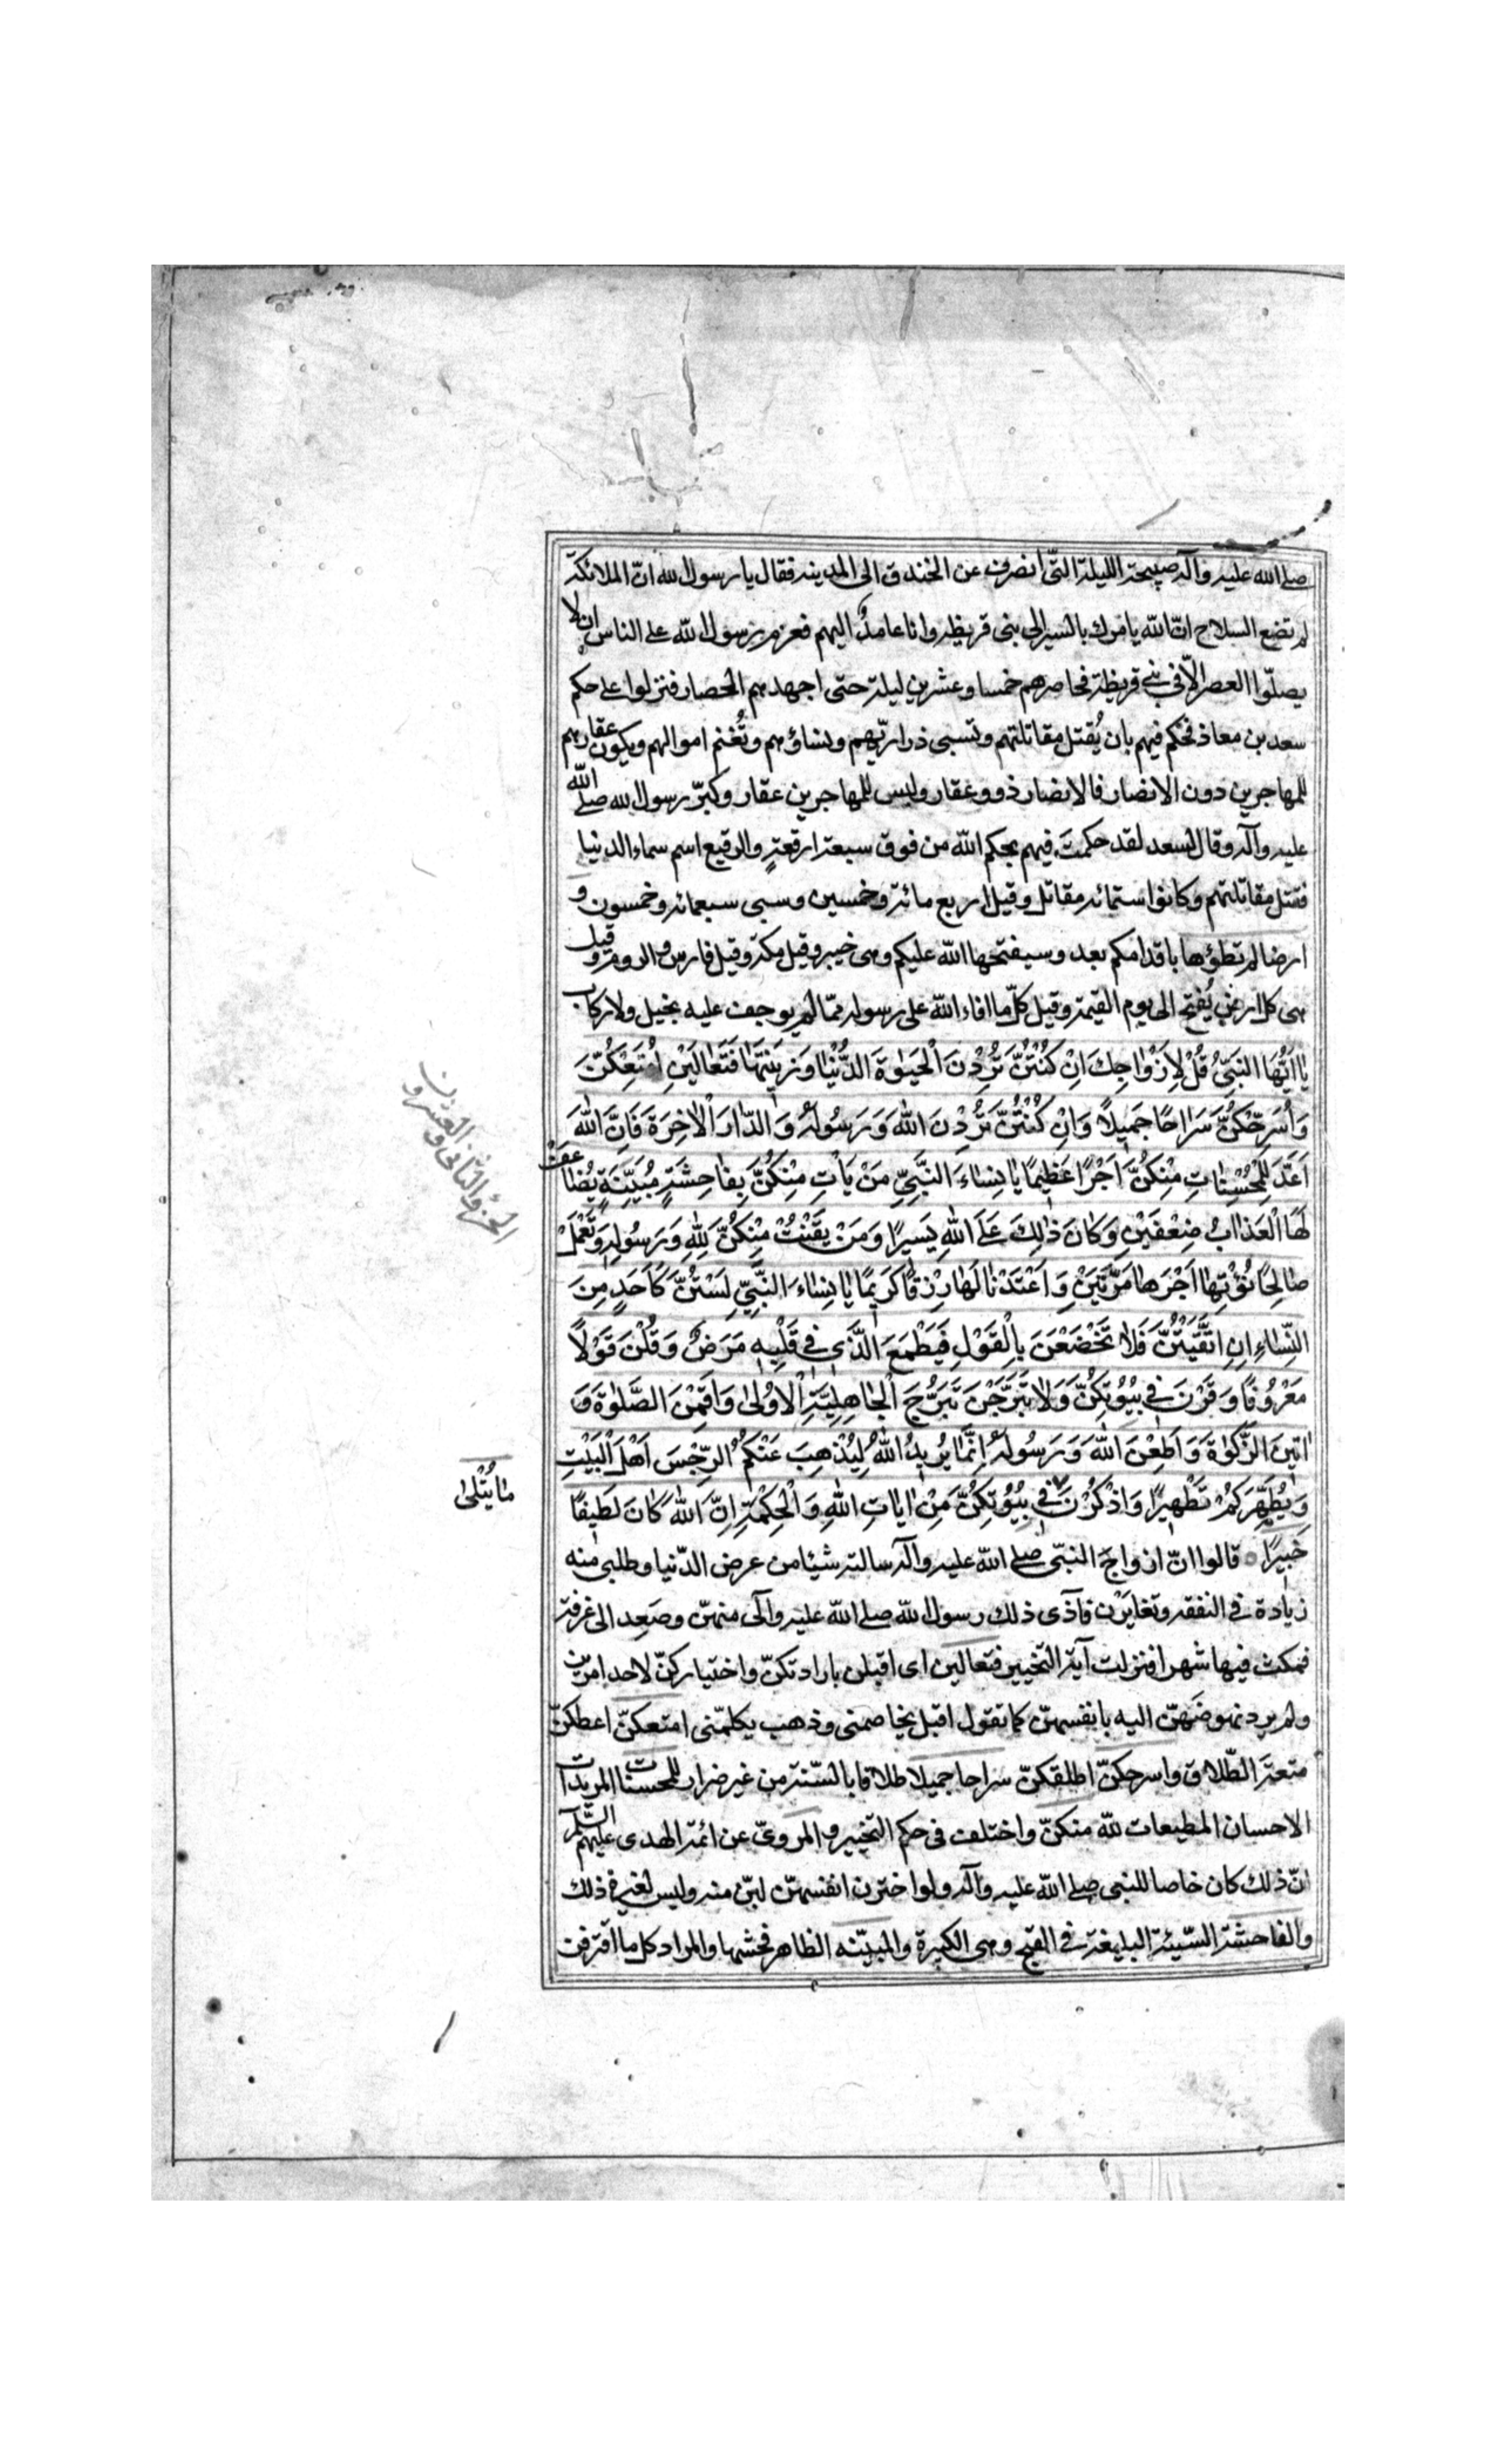 صلى الله عليه وآله صبيحة الليلة التى انصرف عن الخندق الى المدينه فقال يا رسول الله انّ الملائكة
لم تضع السلاح انّ الله يامرك بالسير الى بنى قريظه وانا عامدٌ اليهم فعزم رسول الله على الناس ان لا
يصلّوا العصر الّا فى بنى قريظة فحاصرهم خمسا وعشرين ليلة حتى اجهدهم الحصار فنزلوا على حكم
سعد بن معاذ فحكم فيهم بان يُقتل مقاتلتهم وتسبى ذراريّهم ونساؤهم وتُغنم اموالهم ويكون عقارهم
للمهاجرين دون الانصار فالانصار ذوو عقار وليس للمهاجرين عقار وكبّر رسول الله صلى الله
عليه وآله وقال لسعد لقد حكمتَ فيهم بحكم الله من فوق سبعة ارقعةٍ والرقيع اسم سماء الدنيا
فقتل مقاتلتهم وكانوا ستمائه مقاتل وقيل اربع مائة وخمسين وسبى سبعمائه وخمسون و
ارضا لم تطؤها باقدامكم بعد وسيفتحها الله عليكم وهى خيبر وقيل مكة وقيل فارس والروم وقيل
هى كل ارض يُفتح الى يوم القيمة وقيل كلّ ما افاء الله على رسوله ممّا لم يوجف عليه بخيل ولا ركاب
يٰا اَيُّهَا النَّبِىُّ قُلْ لِاَزْوٰاجِكَ اِنْ كُنْتُنَّ تُرِدْنَ الْحَيٰوةَ الدُّنْيٰا وَزِينَتَهٰا فَتَعٰالَيْنَ اُمَتِّعْكُنَّ
وَاُسَرِّحْكُنَّ سَرٰاحًا جَمِيلًا وَاِنْ كُنْتُنَّ تُرِدْنَ اللهَ وَرَسُولَهُ وَالدّٰارَ الْاٰخِرَةَ فَاِنَّ اللهَ
اَعَدَّ لِلْمُحْسِنٰاتِ مِنْكُنَّ اَجْرًا عَظِيمًا يٰا نِسٰاءَ النَّبِىِّ مَنْ يَأْتِ مِنْكُنَّ بِفٰاحِشَةٍ مُبَيِّنَةٍ يُضٰاعَفْ
لَهَا الْعَذٰابُ ضِعْفَيْنِ وَكٰانَ ذٰلِكَ عَلَى اللهِ يَسِيرًا وَمَنْ يَقْنُتْ مِنْكُنَّ لِلّٰهِ وَرَسُولِهِ وَتَعْمَلْ
صٰالِحًا نُؤْتِهٰا اَجْرَهٰا مَرَّتَيْنِ وَاَعْتَدْنٰا لَهٰا رِزْقًا كَرِيمًا يٰا نِسٰاءَ النَّبِىِّ لَسْتُنَّ كَاَحَدٍ مِنَ
النِّسٰاءِ اِنِ اتَّقَيْتُنَّ فَلٰا تَخْضَعْنَ بِالْقَوْلِ فَيَطْمَعَ الَّذِى فِى قَلْبِهِ مَرَضٌ وَقُلْنَ قَوْلًا
مَعْرُوفًا وَقَرْنَ فِى بُيُوتِكُنَّ وَلٰا تَبَرَّجْنَ تَبَرُّجَ الْجٰاهِلِيَّةِ الْاُولٰى وَاَقِمْنَ الصَّلٰوةَ وَ
اٰتِينَ الزَّكٰوةَ وَاَطِعْنَ اللهَ وَرَسُولَهُ اِنَّمٰا يُرِيدُ اللهُ لِيُذْهِبَ عَنْكُمُ الرِّجْسَ اَهْلَ الْبَيْتِ
وَيُطَهِّرَكُمْ تَطْهِيرًا وَاذْكُرْنَ فِى بُيُوتِكُنَّ مِنْ اٰيٰاتِ اللهِ وَالْحِكْمَةِ اِنَّ اللهَ كٰانَ لَطِيفًا
خَبِيرًا قالوا انّ ازواجَ النبّى صلى الله عليه وآله سالته شيئا من عرض الدّنيا وطلبى منه
زيادة فى النفقه وتغايَرْن فآذى ذلك رسول الله صلى الله عليه وآلى منهنّ وصَعِد الى غرفة
فمكث فيها شهرا فنزلت آية التخيير فتعالين اى اقبلن بارادتكنّ واختياركنّ لاحد امرين
ولم يرد نهوضَهنّ اليه بانفسهنّ كما تقول اقبل يخاصمنى وذهب يكلمّنى امتعكنّ اعطكنّ
متعة الطّلاق واسرحكنّ اطلقكنّ سراحا جميلا طلاقا بالسّنة من غير ضرار للمحسنات المريدات
الاحسان المطيعات لله منكنّ واختلف فى حكم التخيير والمروىّ عن ائمة الهدى عليهم السّلم
انّ ذلك كان خاصا للنبى صلى الله عليه وآله ولو اخترن انفسهنّ لبنّ منه وليس لغيره ذلك
والفاحشة السّيئة البليغة فى القبح وهى الكبيرة والمبيّنه الظاهر فحشها والمراد كل ما اقترفن
الجزؤ الثانى والعشرون
مٰا يُتْلٰى